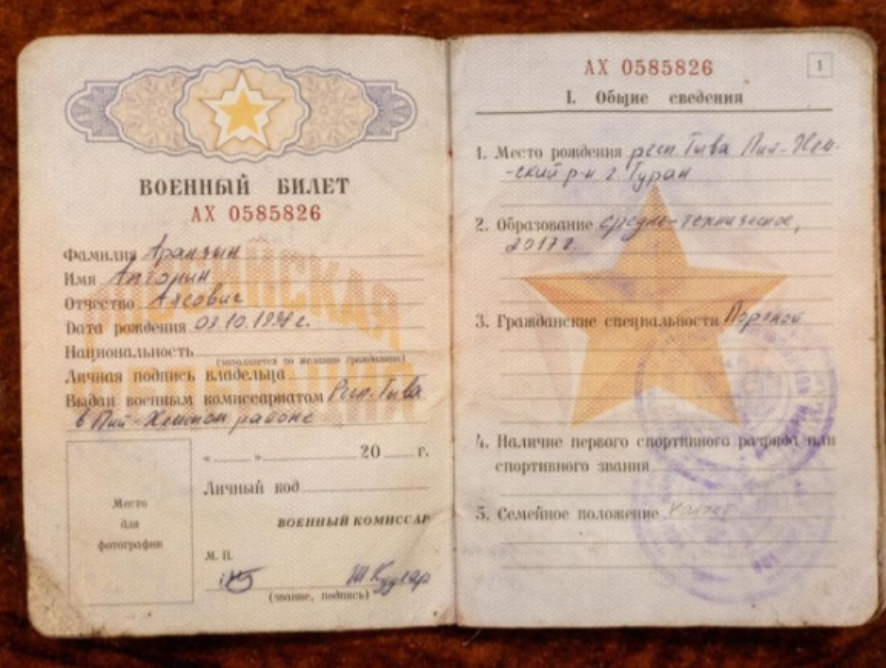 ВОЕННЫЙ БИЛЕТ
АХ 0585826
Фамилия Аранчын
Имя
Отчество Алсович
Дата рождения 03.10.1998 г.
Национальность
(заполняется по желанию гражданина)
Личная подпись владельца
Выдан военным комиссариатом Респ. Тыва
в Пий-Хемском районе
РОССИЙСКАЯ
ФЕДЕРАЦИЯ
« » 20 г.
Личный код
Место
для
фотографии
ВОЕННЫЙ КОМИССАР
М. П.
Ж Куулар
(звание, подпись)
АХ 0585826
1
I. Общие сведения
1. Место рождения респ. Тыва Пий-Хем-
-ский р-н г. Туран
2. Образование средне-техническое,
2017 г.
3. Гражданские специальности
4. Наличие первого спортивного разряда или
спортивного звания
5. Семейное положение холост